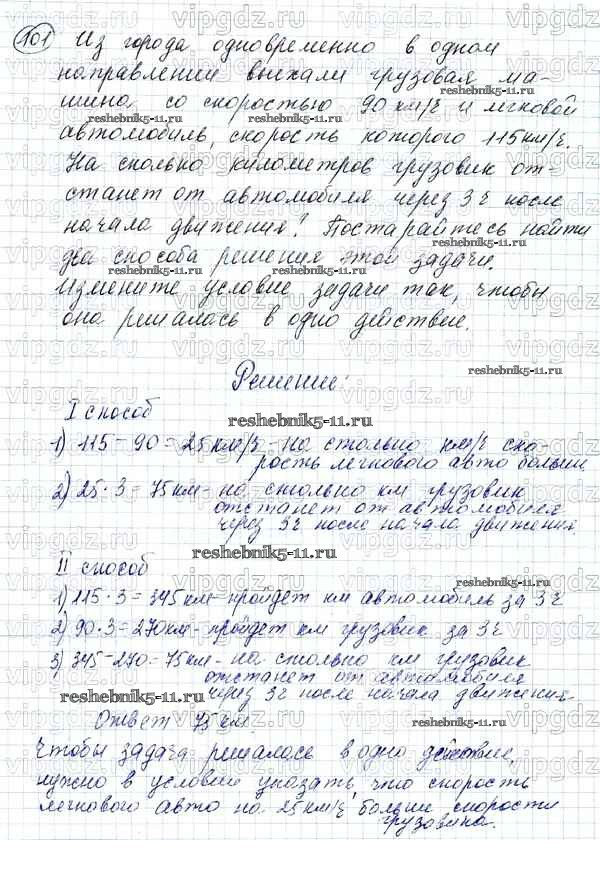 101 Из города одновременно в одном
направлении выехали грузовая ма-
шина со скоростью 90 км/ч и легковой
автомобиль, скорость которого 115 км/ч.
На сколько километров грузовик от-
станет от автомобиля через 3 ч после
начала движения? Постарайтесь найти
два способа решения этой задачи.
Измените условие задачи так, чтобы
она решалась в одно действие.
Решение:
I способ
1) 115 - 90 = 25 км/ч - на столько км/ч ско-
рость легкового авто больше
2) 25 · 3 = 75 км - на столько км грузовик
отстанет от автомобиля
через 3 ч после начала движения.
II способ
1) 115 · 3 = 345 км - пройдет км автомобиль за 3 ч
2) 90 · 3 = 270 км - пройдет км грузовик за 3 ч
3) 345 - 270 = 75 км - на столько км грузовик
отстанет от автомобиля
через 3 ч после начала движения.
Ответ 75 км.
Чтобы задача решалась в одно действие,
нужно в условии указать, что скорость
легкового авто на 25 км/ч больше скорости
грузовика.